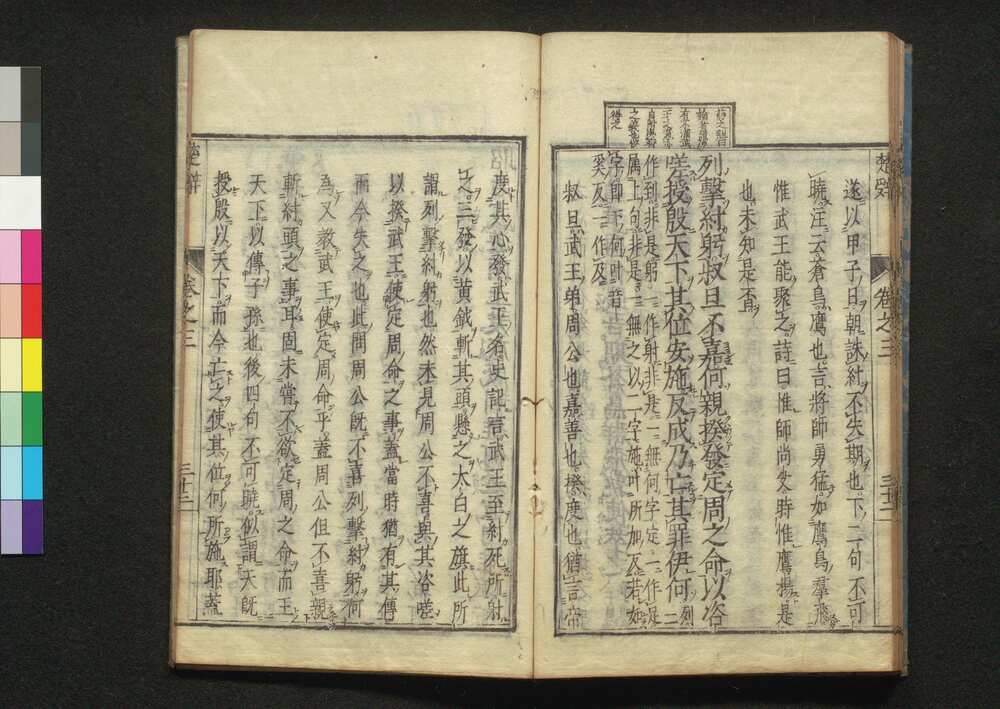 楚辭
卷之三
三十二
遂以甲子日朝誅紂不失期也下二句不可
曉注云倉鳥鷹也言將師勇猛如鷹鳥羣飛
惟武王能聚之詩曰惟師尚父時惟鷹揚是
也未知是否
列擊紂躬叔旦不嘉何親揆發定周之命以咨
嗟授殷天下其位安施反成乃亡其罪伊何
列
作到非是躬一作射非是一無何字定一作足
屬上句非是一無之以二字施叶所加反若如
字即下何叶音
奚反一作及
叔旦武王弟周公也嘉善也揆度也猶言帝
度其心發武王名史記言武王至紂死所射
之三發以黃鉞斬其頭懸之太白之旗此所
謂列擊紂躬也然未見周公不喜與其咨嗟
以揆武王使定周命之事蓋當時猶有其傳
而今失之也此問周公既不喜列擊紂躬何
為又教武王使定周命乎蓋周公但不喜親
斬紂頭之事耳固未嘗不欲定周之命而王
天下以傳子孫也後四句不可曉似謂天既
授殷以天下而今亡之使其位何所施耶蓋
楚辭
卷之三
三十二